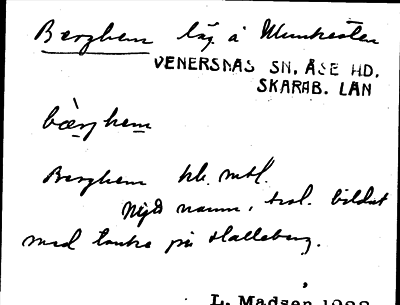 Berghem läg. å Munkesten
VENERSNÄS SN. ÅSE HD.
SKARAB. LÄN
bæ̀rghem
Berghem hb. mtl.
Nytt namn, trol. bildat
med tanke på Halleberg.
L. Madsen 1923